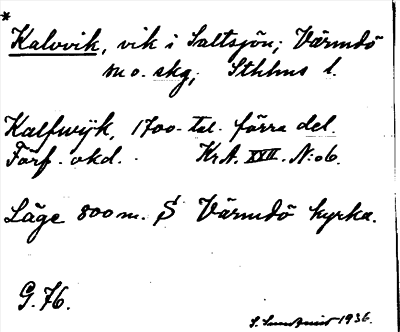 *
Kalvvik, vik i Saltsjön; Värmdö
sn o. skg, Sthlms l.
Kalfwijk, 1700-tal. förra del.
Förf. okd. KrA. XXII. N:o 6.
Läge 800 m. S Värmdö kyrka.
G. 76.
S. Sundqvist 1936.